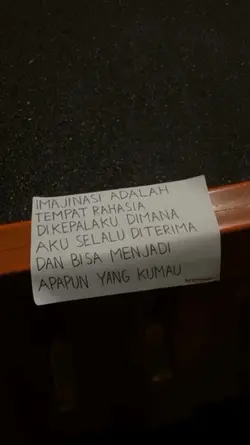 IMAJINASI ADALAH
TEMPAT RAHASIA
DIKEPALAKU DIMANA
AKU SELALU DITERIMA
DAN BISA MENJADI
APAPUN YANG KUMAU